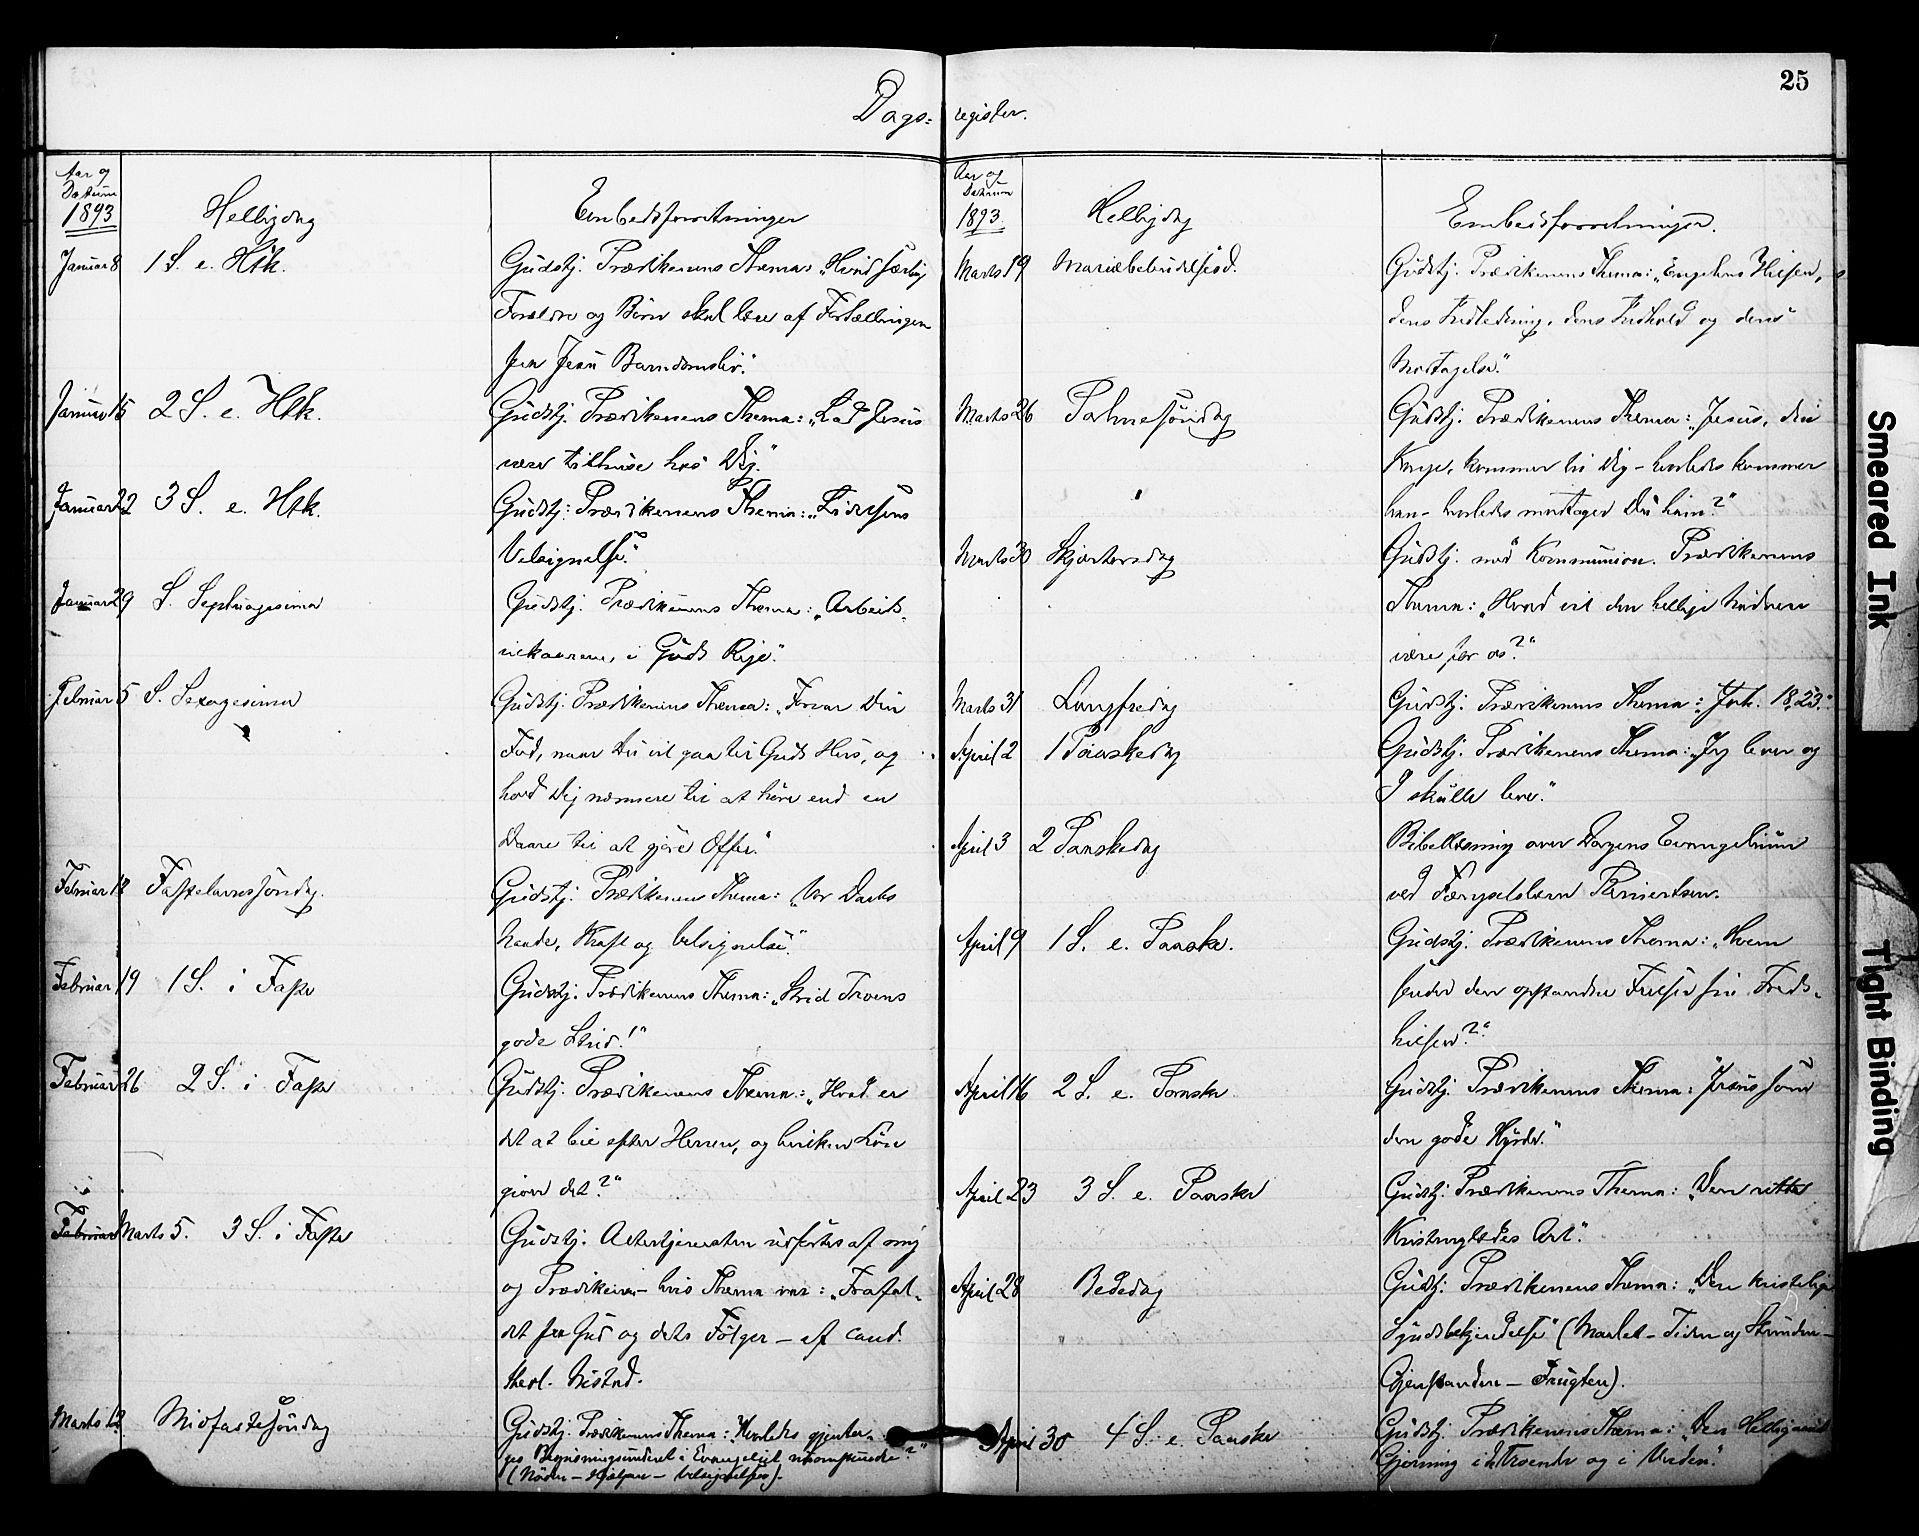 25
Dags= register.
Aar og
Datum
1893
Helligdag
Embedsforretninger
Januar 8 1 S. e. Htk. Gudstj. Prædikenens Thema: „Hvad særlig
Forældre og Börn skal lære af Fortællingen
fra Jesu Barndomsliv."
Januar 15 2 S. e. Htk. Gudstj. Prædikenens Thema: „Lad Jesus
være tilhuse hos Dig."
Januar 22 3 S. e. Htk. Gudstj: Prædikenens Thema: „Lidelsens
Velsignelse."
Januar 29 S. Septuagesima Gudstj. Prædikenens Thema: „Arbeids-
vilkaarene i Guds Rige."
Februar 5 S. Sexagesima Gudstj. Prædikenens Thema: „Forvar Din
Fod, naar Du vil gaa til Guds Hus, og
hold Dig nærmere til at höre end en
Daare til at gjöre Offer."
Februar 12 Fastelavnssöndag. Gudstj. Prædikenens Thema: „Vor Daabs
Naade, Kraft og Velsignelse."
Februar 19 1 S. i Faste Gudstj. Prædikenens Thema: „Strid Troens
gode Strid!"
Februar 26 2 S. i Faste Gudstj. Prædikenens Thema: „Hvad er
det at bie efter Herren, og hvilken Lön
giver det?"
Februar Marts 5. 3 S. i Faste Gudstj. Altertjenesten udförtes af mig
og Prædiken – hvis Thema var: „Frafal-
det fra Gud og dets Fölger – af cand.
theol. Nistad.
Marts 12 Midfastesöndag Gudstj. Prædikenens Thema: „Hvorledes gjenta-
ges Bespisningsunderet i Evangeliet
(Nöden – Hjælpen – Velsignelsen).
Aar og
Datum
1893.
Helligdag
Embedsforretninger.
Marts 19 Mariæbebudelsesd. Gudstj. Prædikenens Thema: „Engelens Hilsen,
dens Indledning, dens Indhold og dens
Modtagelse."
Marts 26 Palmesöndag Gudstj. Prædikenens Thema: „Jesus, din
Konge, kommer til Dig – hvorledes kommer
han – hvorledes modtager Du ham?"
Marts 30 Skjærtorsdag Gudstj. med Kommunion. Prædikenens
Thema: „Hvad vil den hellige Nadvere
være for os?"
Marts 31 Langfredag Gudstj. Prædikenens Thema: „Joh. 18, 23."
April 2 1 Paaskedag Gudstj. Prædikenens Thema: „Jeg lever og
I skulle leve."
April 3 2 Paaskedag Bibellæsning over Dagens Evangelium
ved Fængselslærer
April 9 1 S. e. Paaske. Gudstj. Prædikenens Thema: „Hvem
sender den opstandne Frelser sin Freds-
hilsen?"
April 16 2 S. e. Paaske Gudstj. Prædikenens Thema: „Jesus som
den gode Hyrde."
April 23 3 S. e. Paaske Gudstj. Prædikenens Thema: „Den rette
Kristenglædes Art".
April 28 Bededag Gudstj. Prædikenens Thema: „Den kristelige
Syndsbekjendelse" (Maalet – Tiden og Stunden –
Gjenstanden – Frugten).
April 30 4 S. e. Paaske Gudstj. Prædikenens Thema: „Den Helligaands
Gjerning i de Troende og i Verden."
Smeared Ink
Tight Binding